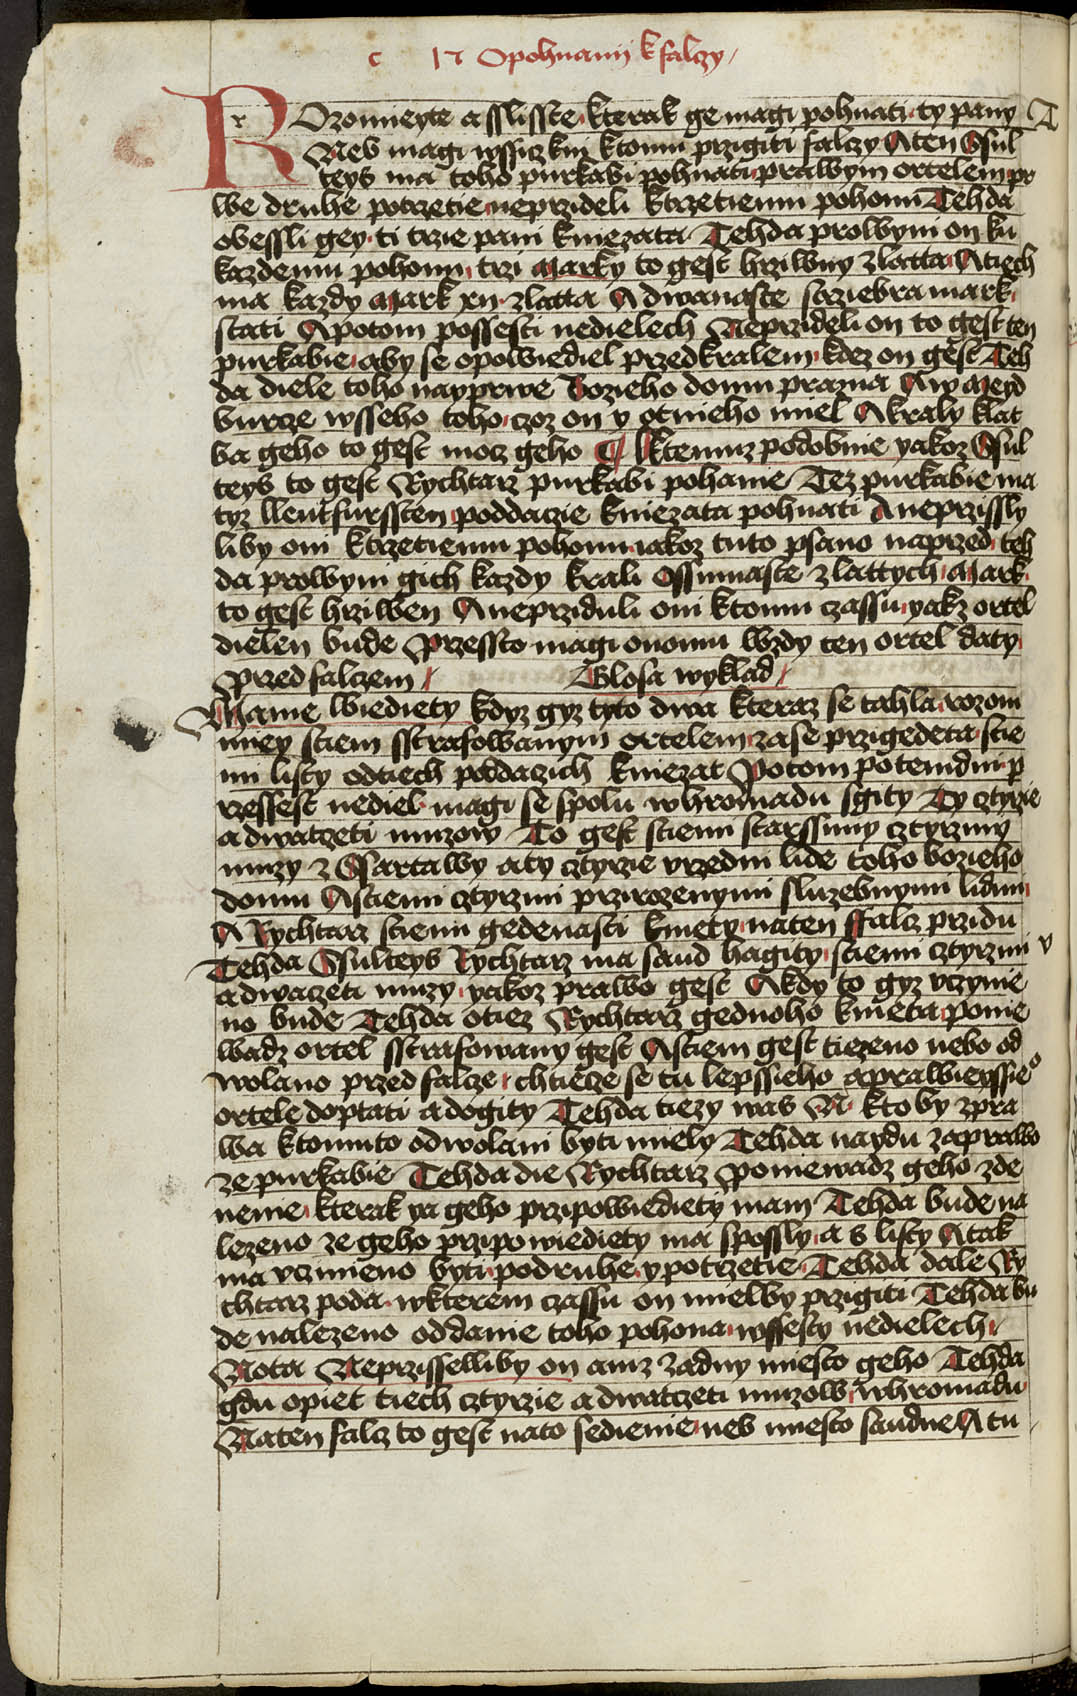 c 17 Opohnanij k falczy
ROzomieyte a slisste kterak ge magi pohnati ty pany
Neb magi wssiczkni ktomu przigiti falczy A ten Ssul
teys ma toho purkabi pohnati prawym ortelem pr
we druhe potrzetie neprzideli ktrzetiemu pohonu Tehda
obessli gey ti trzie pani kniezata Tehda prowyni on ku
kazdemu pohonu trzi Marky to gest hrziwny zlatta A tiech
ma kazdy Mark xij zlatta A dwanaste strziebra mark
stati A potom possesti nedielech Neprzideli on to gest ten
purkabie aby se opowiediel przed kralem kdez on gest Teh
da diele toho nayprwe Bozieho domu prazna A w Meyd
burcze wsseho toho czoz on y otnieho miel A kraly klat
ba geho to gest mocz geho Ktemuz podobnie yakoz Ssul
teys to gest Rychtarz purkabi pohanie Tez purkabie ma
tyz llentfurssten poddacie kniezata pohnati A neprzissly
liby oni ktrzetiemu pohonu iakoz tuto psano naprzed teh
da prowyni gich kazdy krali Ossmnaste zlattych Mark
to gest hrziwen A neprziduli oni ktomu czassu yakz ortel
dielen bude Przessto magi onomu wzdy ten ortel daty
przed falczem Glosa wyklad
Mame wiediety kdyz gyz tyto dwa kteraz se tahla rozom
niey stiem sstrafowanym ortelem zase przigedeta stie
mi listy odtiech poddaczich kniezat Potom po temdni p
rzessest nediel magi se spolu whromadu sgity Ty cztyrzie
a dwatczeti muzow To gest stiemi starssimy cztyrzmy
muzy z Ssartawy a ty cztyrzie vrzedni lide toho bozieho
domu A stiemi cztyrzmi przirozenymi sluzebnymi lidmi
A Rychtarz stiemi gedenasti kmety naten ffalcz przidu
Tehda Ssulteys Rychtarz ma saud hagity stiemi cztyrzmi v
a dwaczeti muzy yakoz prawo gest A kdy to gyz vczynie
no bude Tehda otiez Rychtarz gednoho kmeta ponie
wadz ortel sstrafowany gest A stiem gest tiezeno nebo od
wolano przed falcze chtiecze se tu lepssieho a prawieyssieo
ortele doptati a dogity Tehda tiezy was N kto by zpra
wa ktomuto odwolani byti miely Tehda naydu zaprawo
ze purkabie Tehda die Rychtarz Poniewadz geho zde
nenie kterak ya geho przipowiediety mam Tehda bude na
lezeno ze geho przipowiediety ma s possly a s listy A tak
ma vczinieno byti podruhe y potrzetie Tehda dale Ry
chtarz poda wkterem czassu on mielby przigiti Tehda bu
de nalezeno oddanie toho pohona wssesty nedielech
Nota Neprzisselliby on aniz zadny miesto geho Tehda
gdu opiet tiech cztyrzie a dwatczeti muzow whromadu
Naten falcz to gest nato sedienie neb miesto saudne A tu